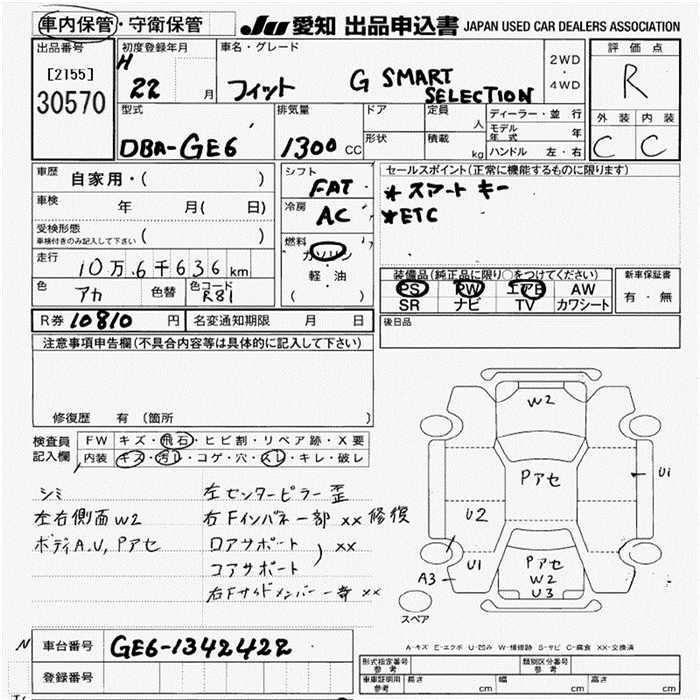 車内保管・守衛保管 JU 愛知 出品申込書 JAPAN USED CAR DEALERS ASSOCIATION
出品番号 初度登録年月 車名・グレード 2WD・4WD 評価点
[2155] H 22 月 フィット G SMART SELECTION R
30570
型式 排気量 ドア 定員 人 ディーラー・並行 外装 内装
DBA-GE6 1300 CC 形状 積載 kg モデル年式 年 C C
ハンドル 左・右
車歴 自家用・( ) シフト FAT セールスポイント(正常に機能するものに限ります)
車検 年 月( 日) 冷房 AC *スマートキー
受検形態 ( ) *ETC
車検付きのみ記入して下さい
燃料 ガソリン・軽・油 ( )
走行 10万6千636km
装備品(純正品に限り○をつけてください) 新車保証書
PS PW エアB AW 有・無
SR ナビ TV カワシート
色 アカ 色替 色コード R81
R券 10810 円 名変通知期限 月 日 後日品
注意事項申告欄(不具合内容等は具体的に記入して下さい)
修復歴 有 (箇所 )
検査員記入欄 FW キズ・飛石・ヒビ割・リペア跡・X要
内装 キズ・汚レ・コゲ・穴・スレ・キレ・破レ
シミ 左センターピラー歪
左右側面W2 右Fインパネ一部××修復
ボディA.U,Pアセ ロアサポート
コアサポート ) ××
右Fサイドメンバー一部××
W2
Pアセ
U1
U2
U1
A3
Pアセ
W2
U3
スペア
車台番号 GE6-1342422
登録番号
A-キズ E-エクボ U-凹み W-補修跡 S-サビ C-腐食 XX-交換済
形式指定番号 参考 類別区分番号 参考
車庫証明用 参考 長さ cm 幅 cm 高さ cm